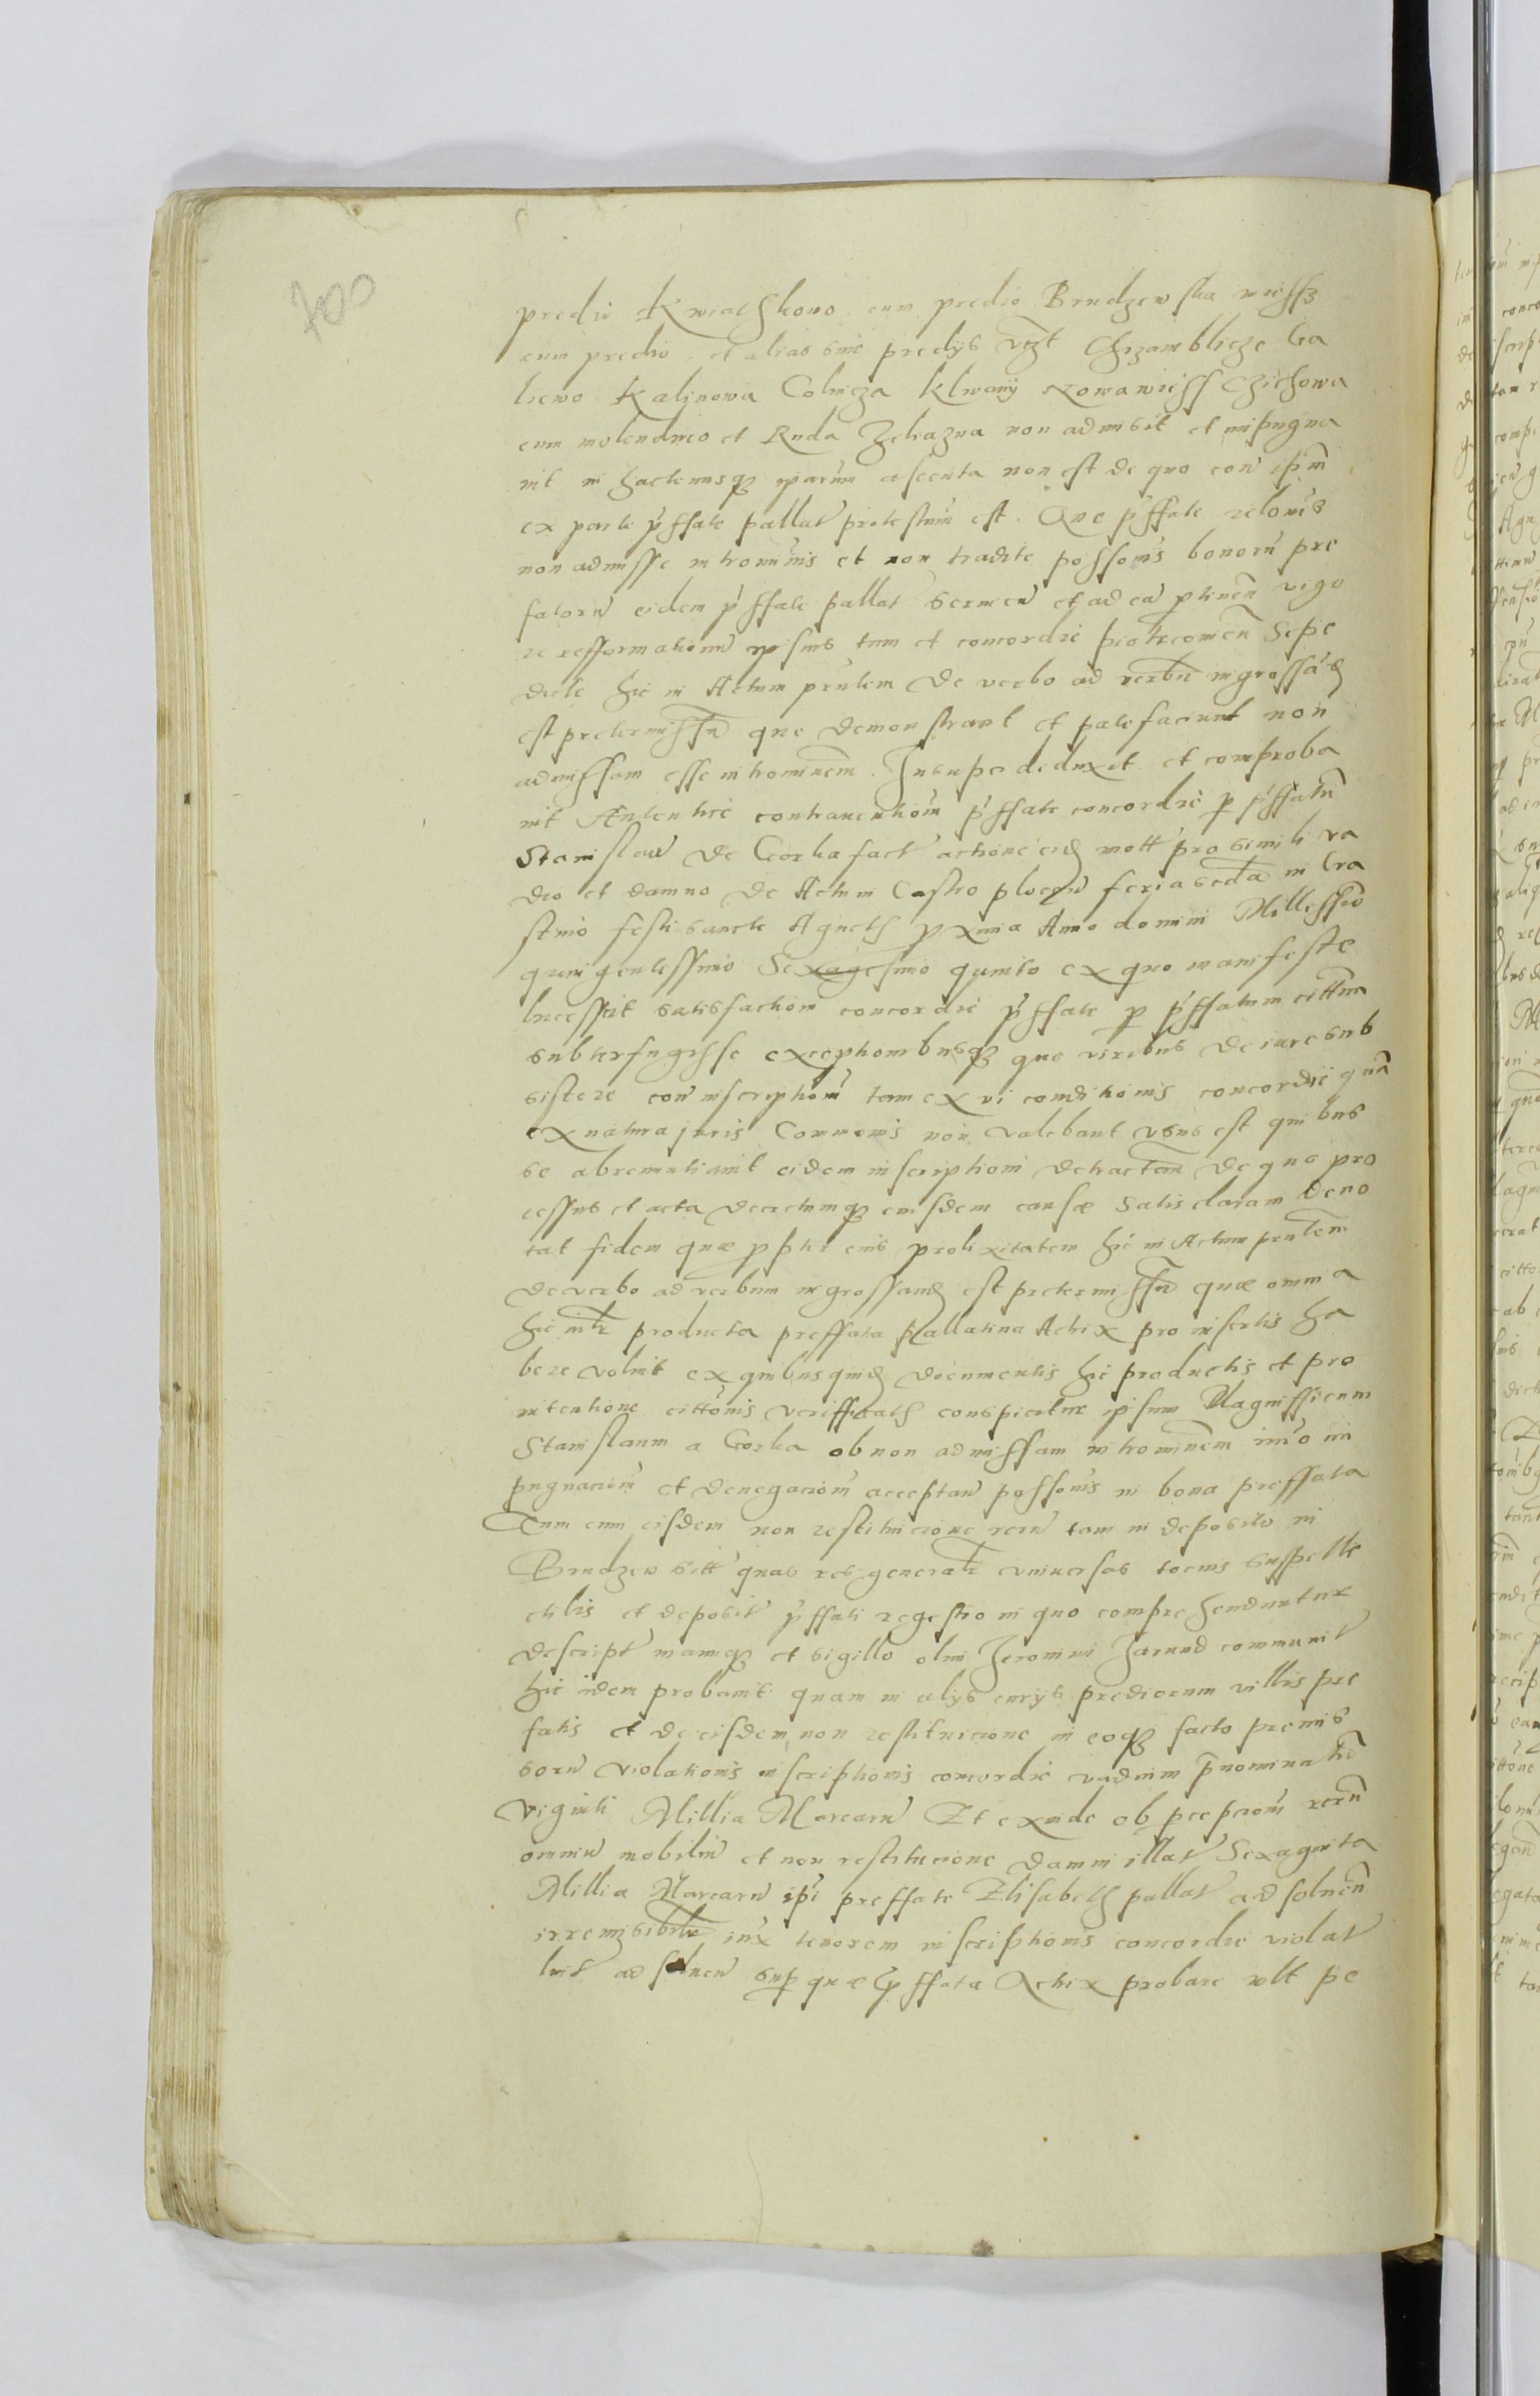 700
predio Kwiathkowo cum predio Brudzewska wiessz
cum predio et alias sine predijs vczt Chizamblicze Ga
licwo Kalinowa Colnicza Klwanij Nowawiess Czichowa
cum molendino et Ruda Zeliazna non admisit et impugna
vit in hactenusqz iparum assecuta non est de quo con ipm
ex parte pffate pallat protestum est. Que pffate relonis
non admisse intromnis et non tradite possonis bonoru pre
fatoru eidem pffate pallat servien et ad ea ptinen vigo
re refformationu ipsius tum et concordie piotrcomen Sepe
dicte hic in Actum pntem de verbo ad verbu ingrossad
est pretermissu que demonstrant et patefaciunt non
admissam esse intromnem. Insuper deduxit et comproba
vit Autentice contravention pffate concordie p pffatu
Stanislau de Gorka fact actione eid mott pro simili va
dio et damno de Actum Castro plocen feria scda in Cra
stino festi sancte Agneth pxima Anno domini Millessio
quingentessimo Sexagesimo quinto ex quo manifeste
lucessit satisfaction concordie pffate p pffatum cittum
subterfugisse exceptionibusqz que viribus de iure sub
sistere con inscription tam ex vi conditionis concordie qua
ex natura juris Communis non valebant usus est quibus
se abrenuntiavit eidem inscriptioni detractan de quo pro
cessus et acta decretumqz eiusdem causæ satis claram deno
tat fidem quæ ppter eius prolixitatem hic in Actum pntem
de verbo ad verbum ingrossand est pretermissu quæ omnia
hic intr producta preffata pallatina Actrix pro insertis ha
bere voluit ex quibusquid documentis hic productis et pro
intentione cittonis verifficath conspicitur ipsum Magnifficum
Stanislaum a Gorka ob non admissam intromnem imo im
pugnacion et denegacion acceptan possonis in bona preffata
Tum cum eisdem non restitucione reru tam in deposito in
Brudzew sitt quas res generalr universas tocius suppelle
ctilis et deposit pffati regestro in quo comprehenduntur
descript manuqz et sigillo olim Jeronimi Jarund communit
hic idem probavit quam in alijs curijs predicorum villis pre
fatis et de eisdem non restitucione in eoqz facto premis
soru violationis inscriptionis concordie vadium pnominatu
viginti Millia Marcaru Et exinde ob pcepcion reru
omniu mobiliu et non restitucione damni illat Sexaginta
Millia Marcaru ipi preffate Elisabeth pallat ad soluen
irremisibilr iux tenorem inscriptionis concordie violat
luit ad soluen sup quæ pffata Actrix probare vlt pe